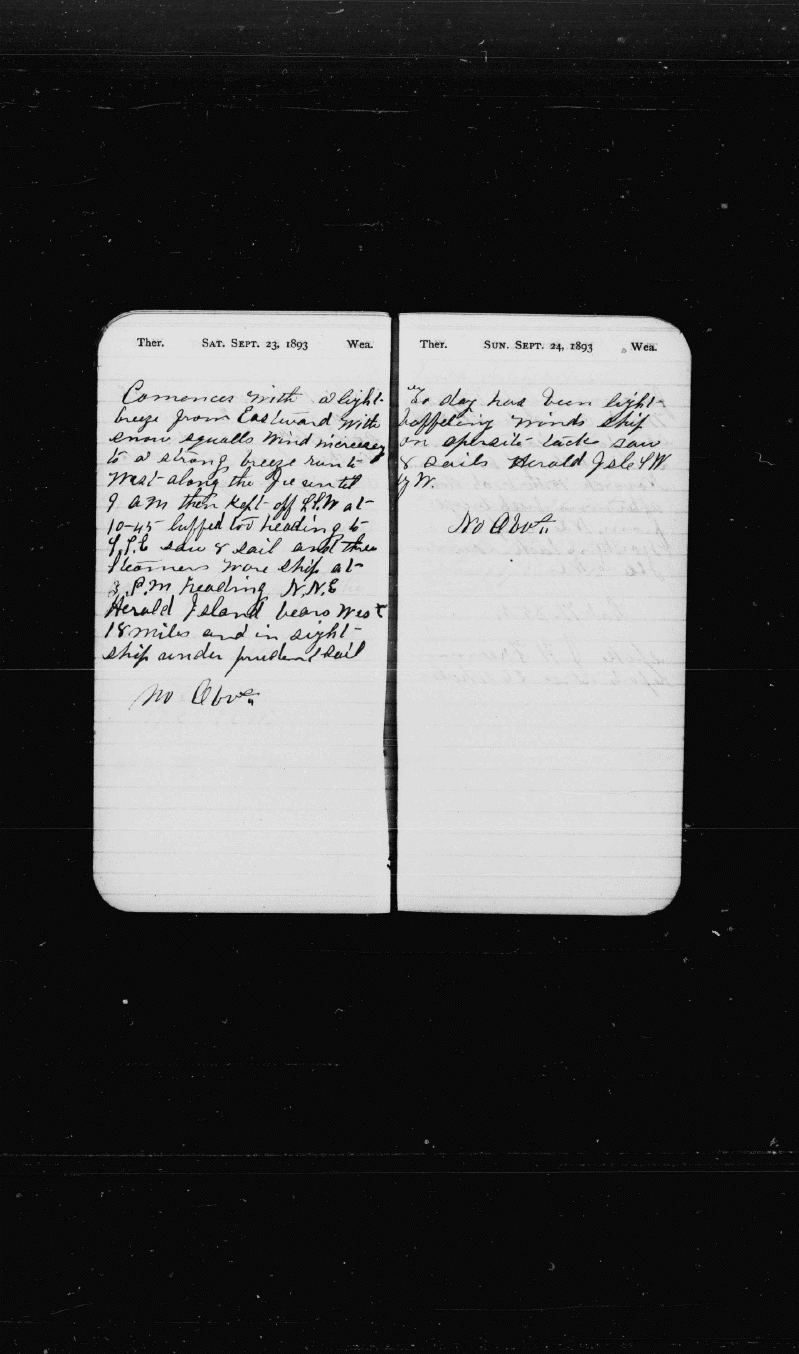 Ther. SAT. SEPT. 23, 1893 Wea.
Comences with a light
breeze from Eastward with
snow squalls wind increasey
to a strong breeze run to
West along the Ice until
9 a m then kept off S.S.W at
10-45 luffed too heading to
S.S.E saw 8 sail and three
steamers wore ship at
3 P.m heading N.N.E
Herald Island bears West
18 miles and in sight
ship under prudent sail
No Obvs"
Ther. SUN. SEPT. 24, 1893 Wea.
To day has been light
baffeling winds ship
on opersit tack saw
8 sails Herald Isle SW
by W.
No Obvs"